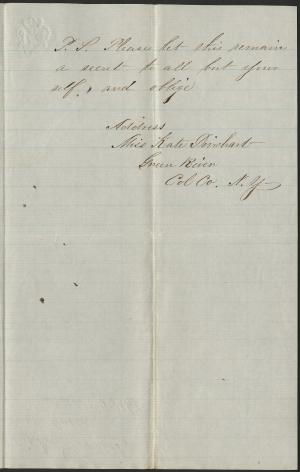 P. S. Please let this remain
a secret to all but your
self, and oblige
Address
Miss Kate Rinehart
Green River
Col Co. N. Y.